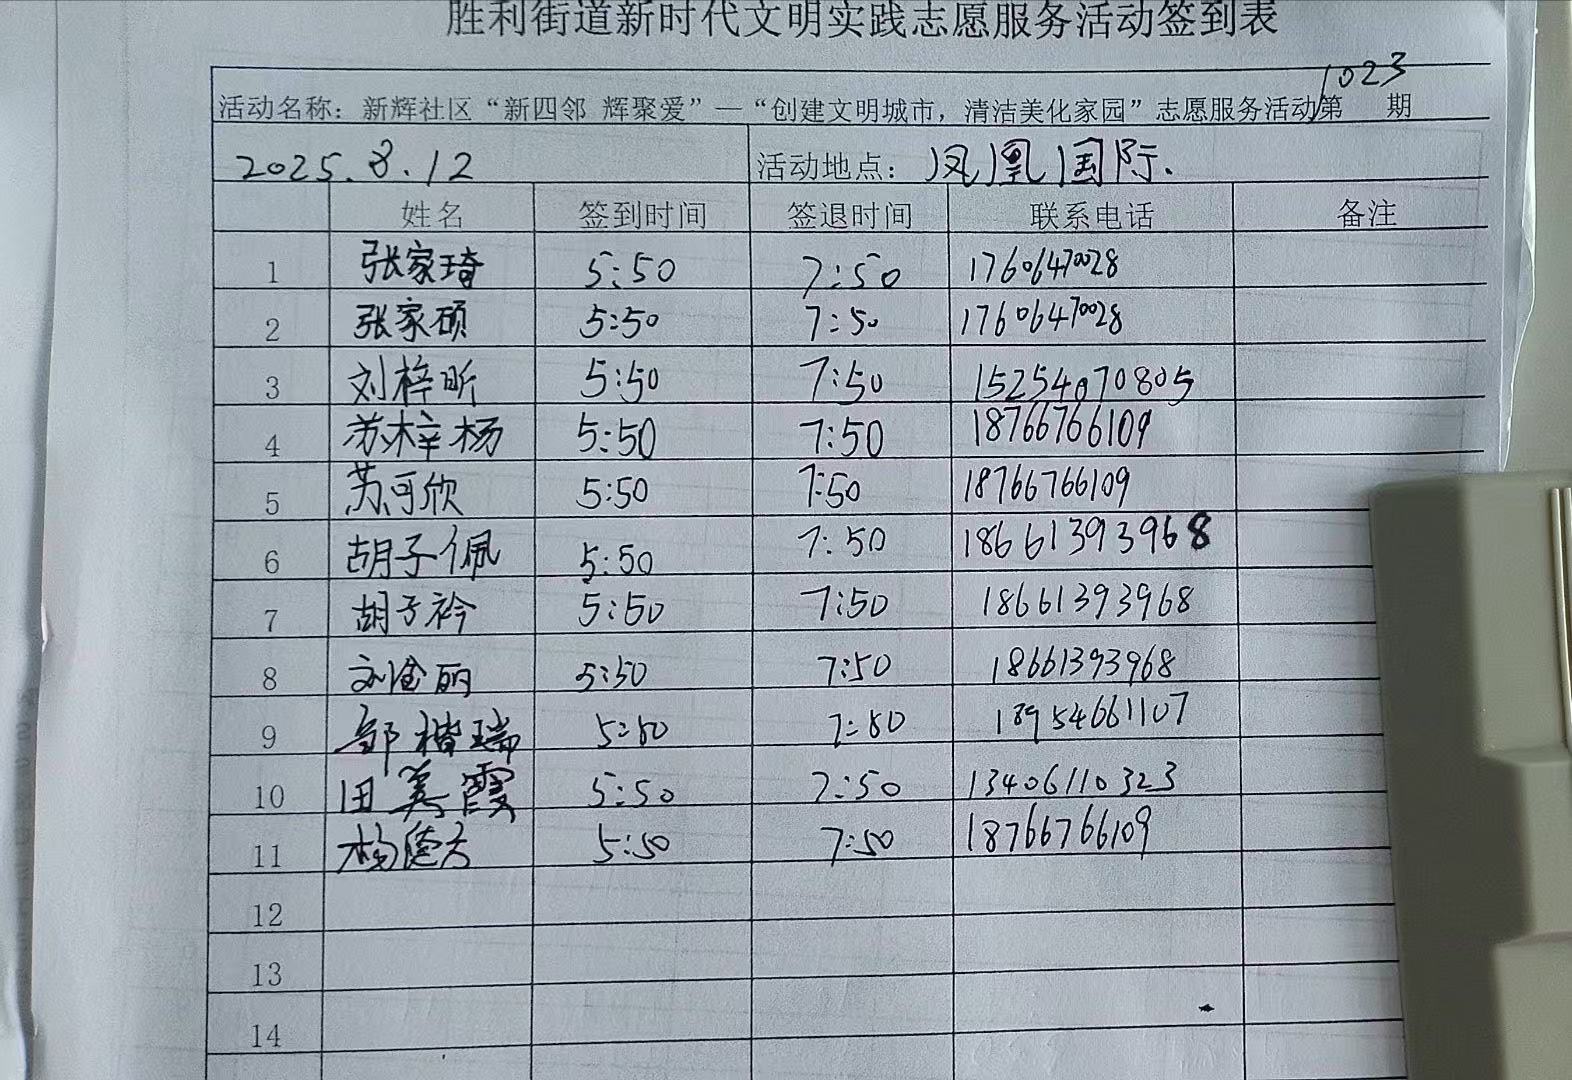 胜利街道新时代文明实践志愿服务活动签到表
活动名称：新辉社区“新四邻 辉聚爱”—“创建文明城市，清洁美化家园”志愿服务活动第1023期
2025.8.12 活动地点：凤凰国际.
姓名 签到时间 签退时间 联系电话 备注
1 张家琦 5:50 7:50 17606470028
2 张家硕 5:50 7:50 17606470028
3 刘梓昕 5:50 7:50 15254070805
4 苏梓杨 5:50 7:50 18766766109
5 苏可欣 5:50 7:50 18766766109
6 胡子佩 5:50 7:50 18661393968
7 胡子衿 5:50 7:50 18661393968
8 刘金丽 5:50 7:50 18661393968
9 邹楷瑞 5:50 7:50 18954661107
10 田美霞 5:50 7:50 13406110323
11 杨 5:50 7:50 18766766109
12
13
14